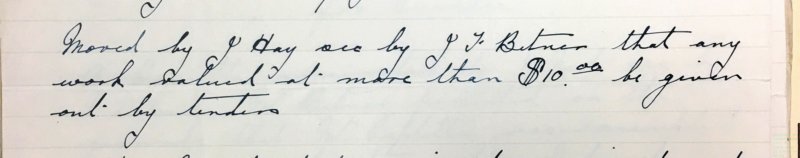 Moved by J Hay sec by J F Betner that any
work valued at more than $10.00 be given
out by tenders